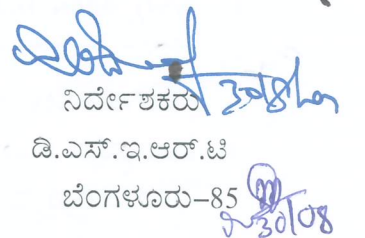 ನಿರ್ದೇಶಕರು
ಡಿ.ಎಸ್.ಇ.ಆರ್.ಟಿ
ಬೆಂಗಳೂರು-85
30/08